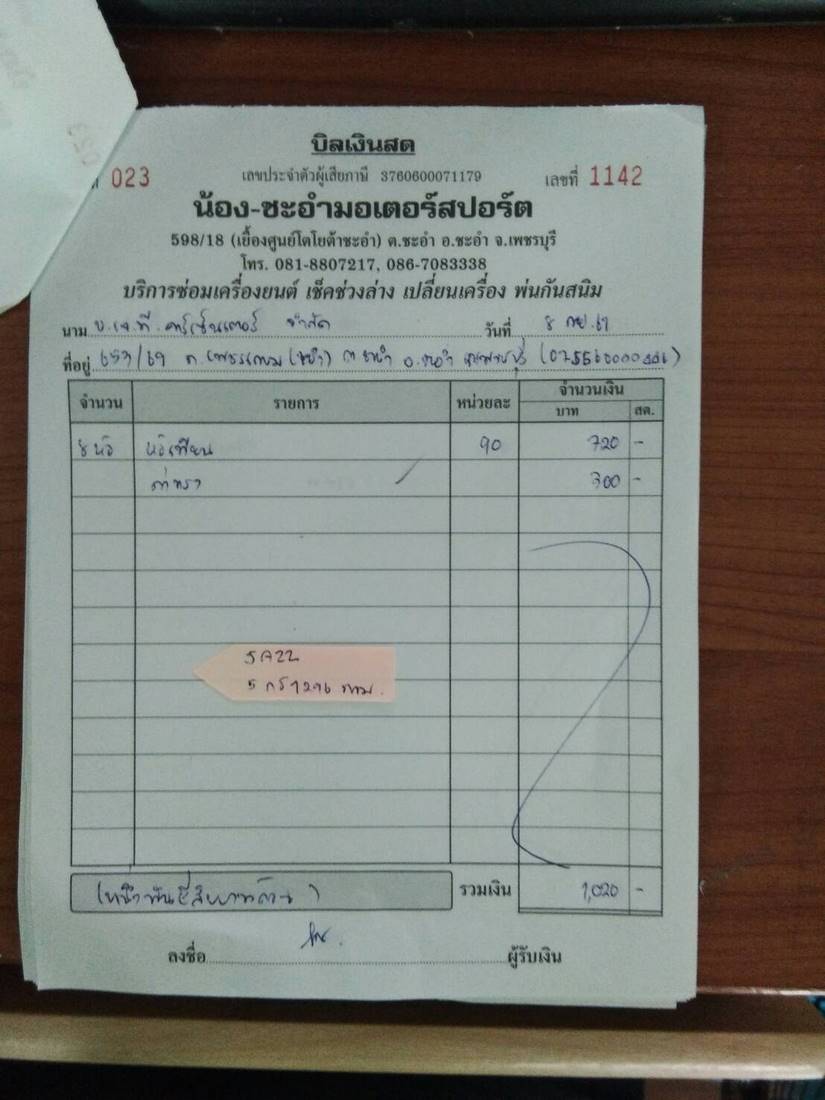 บิลเงินสด
023 เลขประจำตัวผู้เสียภาษี 3760600071179 เลขที่ 1142
น้อง-ชะอำมอเตอร์สปอร์ต
598/18 (เยื้องศูนย์โตโยต้าชะอำ) ต.ชะอำ อ.ชะอำ จ.เพชรบุรี
โทร. 081-8807217, 086-7083338
บริการซ่อมเครื่องยนต์ เช็คช่วงล่าง เปลี่ยนเครื่อง พ่นกันสนิม
นาม บ.เจ.ที. คาร์เซ็นเตอร์ จำกัด วันที่ 8 กย.
ที่อยู่ ถ.เพชรเกษม ต ชะอำ อ.ชะอำ จ.เพชรบุรี
จำนวน รายการ หน่วยละ จำนวนเงิน
บาท สต.
8 หัว หัวเทียน 90 720 -
ค่าแรง 300 -
5 กร 1296 กทม.
(หนึ่งพันยี่สิบบาทถ้วน) รวมเงิน 1,020 -
ลงชื่อ ผู้รับเงิน